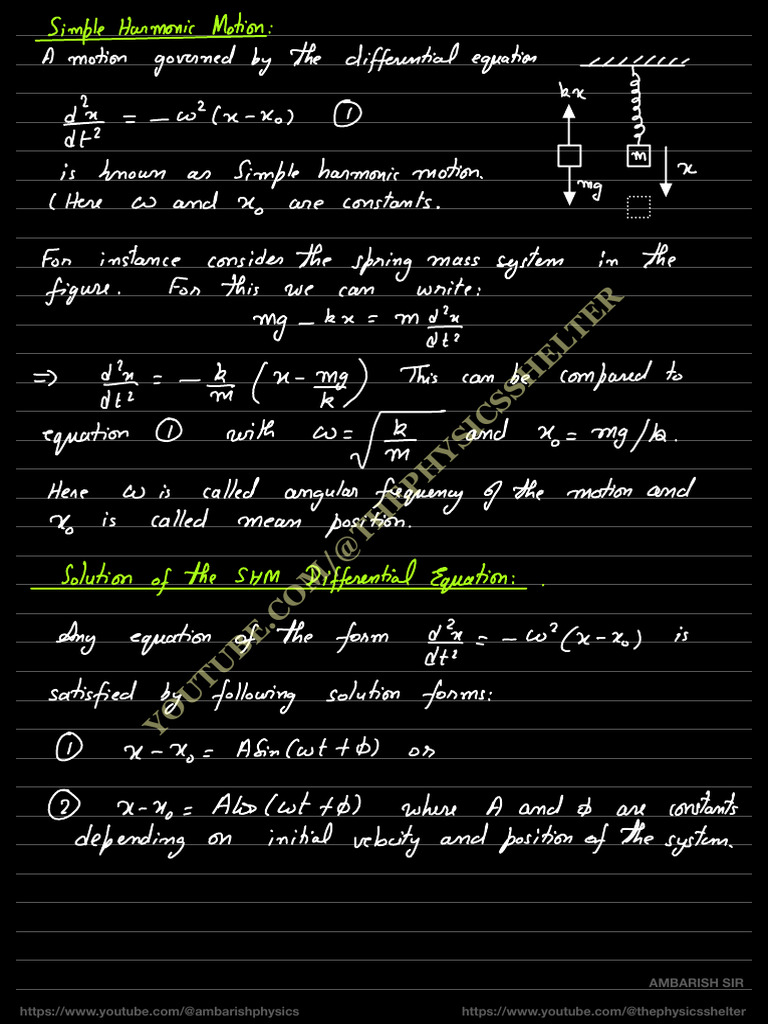 Simple Harmonic Motion:
A motion governed by the differential equation
d²x/dt² = -ω²(x-x₀) ①
is known as Simple harmonic motion.
(Here ω and x₀ are constants.
kx
m
x
mg
For instance consider the spring mass system in the
figure. For this we can write:
mg - kx = m d²x/dt²
=> d²x/dt² = - k/m (x - mg/k) This can be compared to
equation ① with ω = √(k/m) and x₀ = mg/k.
Here ω is called angular frequency of the motion and
x₀ is called mean position.
Solution of the SHM Differential Equation:
Any equation of the form d²x/dt² = -ω²(x-x₀) is
satisfied by following solution forms:
① x-x₀ = ASin(ωt+ϕ) or
② x-x₀ = ACos(ωt+ϕ) where A and ϕ are constants
depending on initial velocity and position of the system.
YOUTUBE.COM/@THEPHYSICSSHELTER
AMBARISH SIR
https://www.youtube.com/@ambarishphysics
https://www.youtube.com/@thephysicsshelter